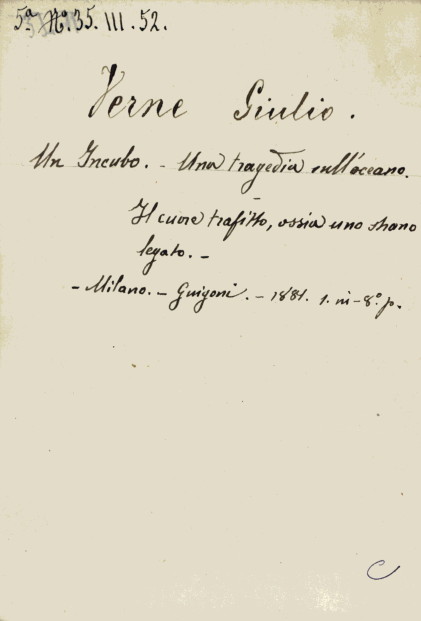 5ª Nº. 35. III. 52.
Verne Giulio.
Un Incubo. - Una tragedia sull'oceano.
Il cuore trafitto, ossia uno strano
legato. -
- Milano. - Guigoni. - 1881. 1. in-8º. p.
C